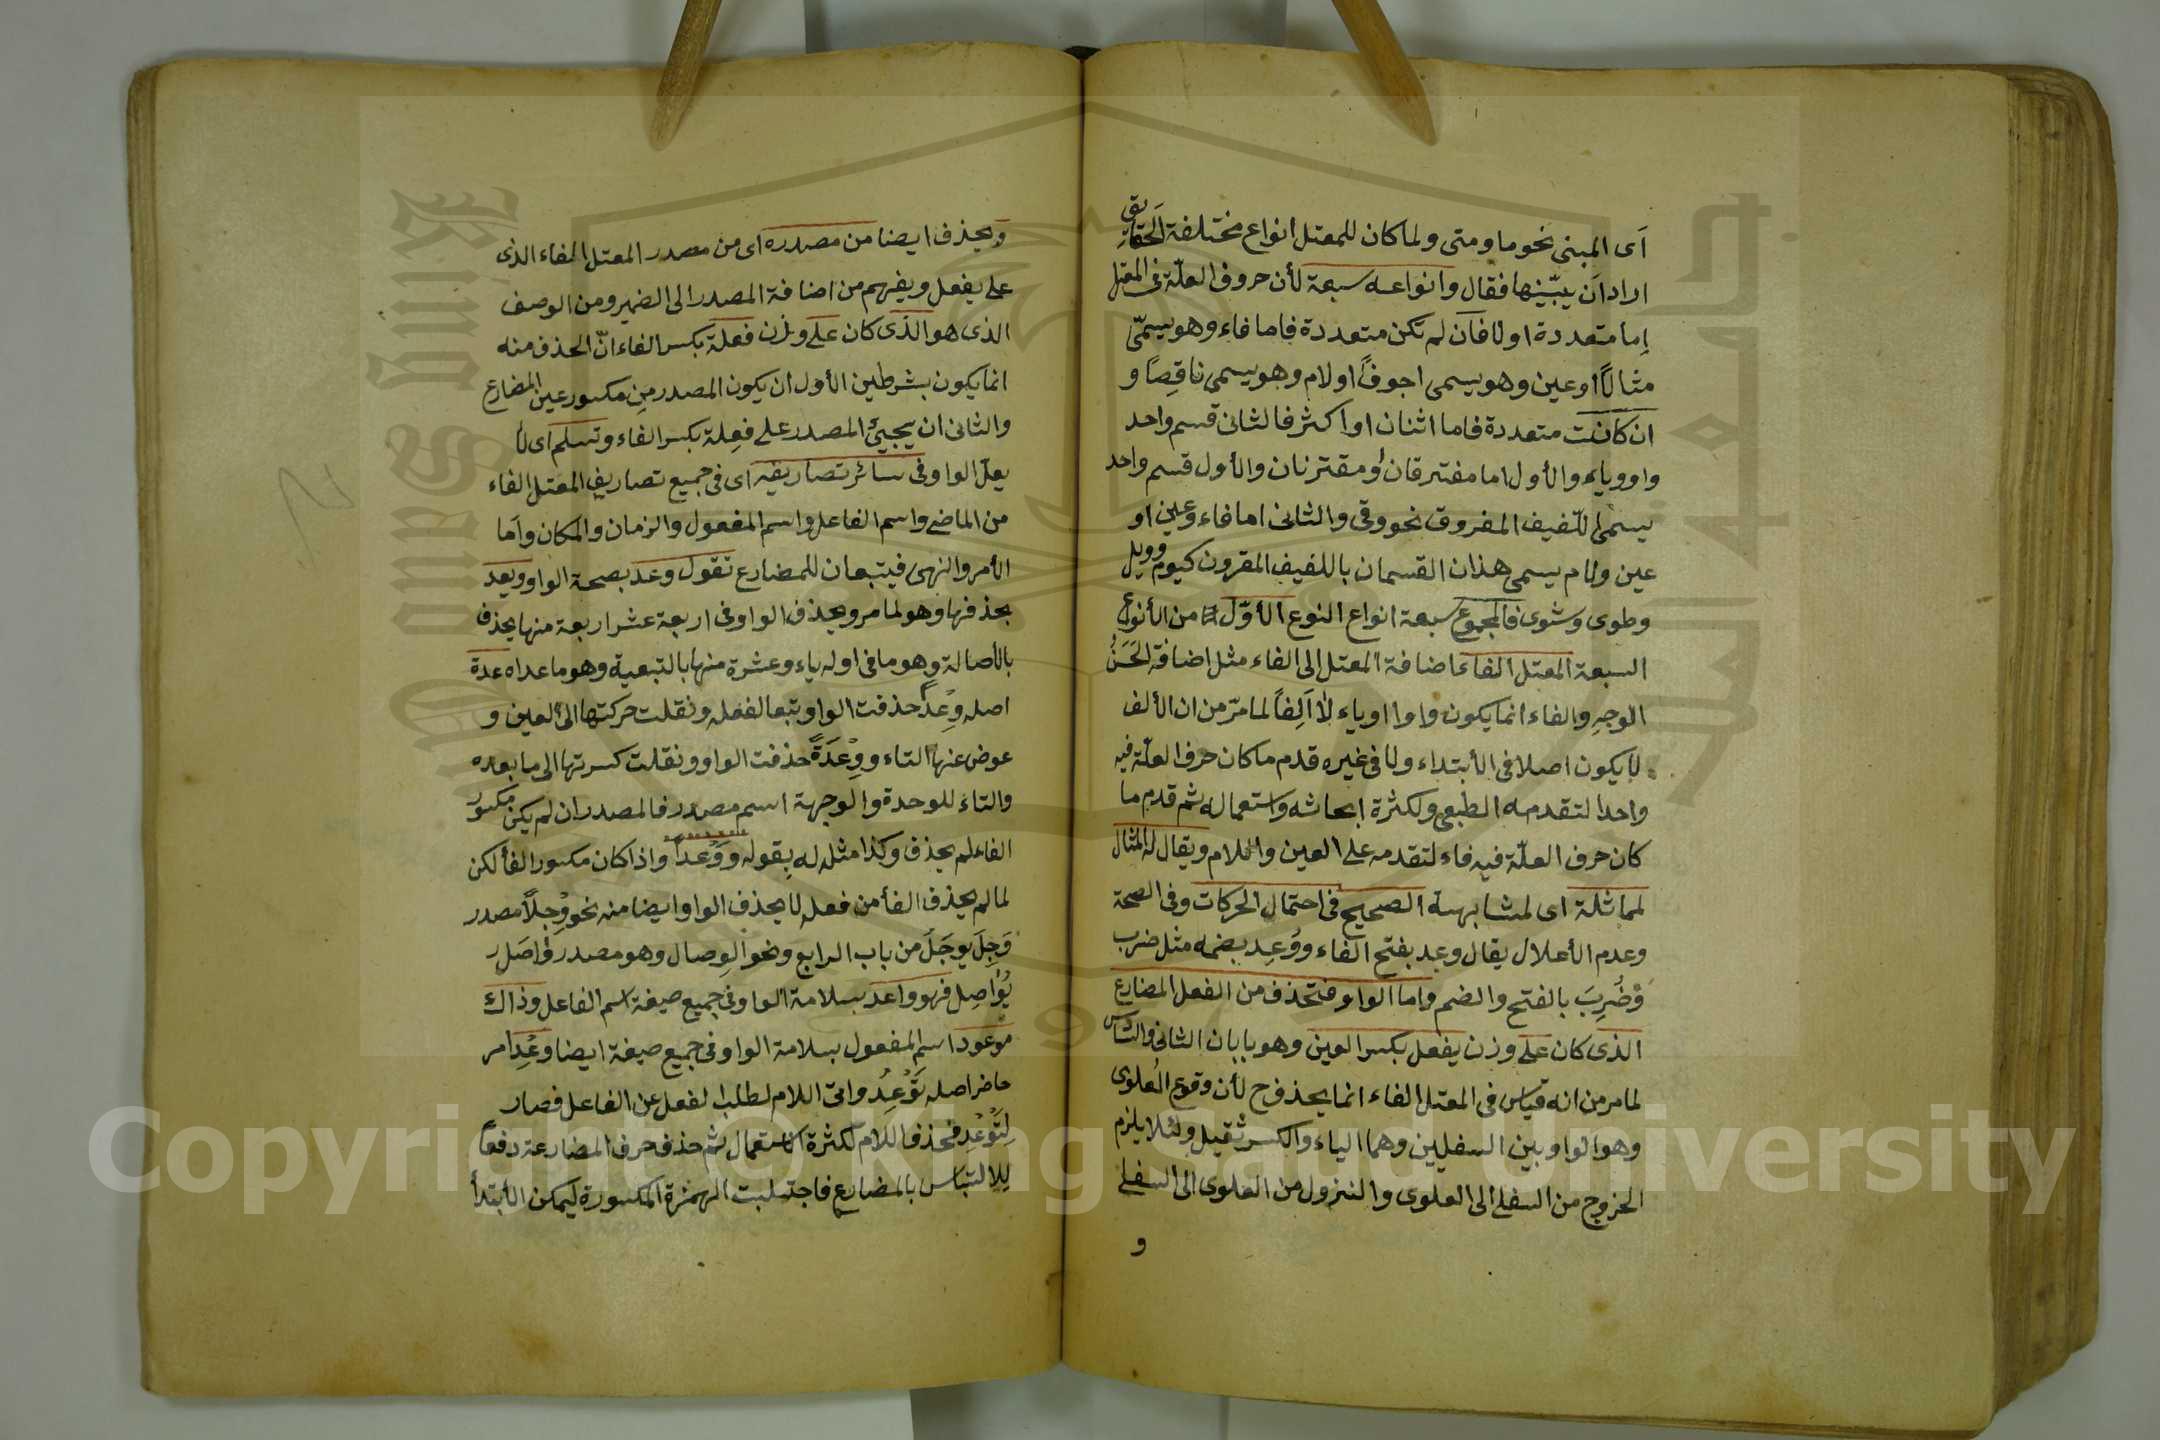 اى المبنى نحو ما ومتى ولما كان للمعتل انواع مختلفة الحقايق
اراد ان يبيّنها فقال وانواعه سبعة لأن حروف العلّة فى المعتل
إما متعددة او لا فان لم تكن متعددة فاما فاء وهو يسمّى
مثالًا او عين وهو يسمى اجوفًا او لام وهو يسمى ناقصًا و
ان كانت متعددة فاما اثنان او اكثر فالثانى قسم واحد
واو وياء والأول اما مفترقان او مقترنان والأول قسم واحد
يسمى اللّفيف المفروق نحو وقى والثانى اما فاء وعين او
عين ولام يسمى هذان القسمان باللفيف المقرون كيوم وويل
وطوى وشوى فالمجموع سبعة انواع النوع الأوّل من الأنواع
السبعة المعتل الفاء اضافة المعتل الى الفاء مثل اضافة الحَسَنُ
الوجهِ والفاء انما يكون واوا او ياء لا اَلِفاً لما مرّ من ان الألف
لا يكون اصلا فى الأبتداء ولا فى غيره قدم ما كان حرف العلّة فيه
واحدا لتقدمه الطبعى ولكثرة ابحاثه واستعماله ثم قدم ما
كان حرف العلّة فيه فاء لتقدمه على العين واللام ويقال له المثال
لمماثلة اى لمشابهة الصحيح فى احتمال الحركات وفى الصحة
وعدم الأعلال يقال وعد بفتح الفاء ووُعِد بضمه مثل ضرب
وضُرِبَ بالفتح والضم واما الواو فتحذف من الفعل المضارع
الذى كان على وزن يفعل بكسر العين وهو بابان الثانى والسادس
لما مر من انه قياس فى المعتل الفاء انما يحذف ح لأن وقوع العُلوى
وهو الواو بين السفليين وهما الياء والكسر ثقيل ولئلا يلزم
الخروج من السفلى الى العلوى والنزول من العلوى الى السفلى
و
ويحذف ايضا من مصدره اى من مصدر المعتل الفاء الذى
على يفعل ويفهم من اضافة المصدر الى الضمير ومن الوصف
الذى هو الذى كان على وزن فعلة بكسر الفاء انّ الحذف منه
انما يكون بشرطين الأول ان يكون المصدر مِن مكسور عين المضارع
والثانى ان يجيئ المصدر على فعِلة بكسر الفاء وتسلم اى لا
يعلّ الواو فى سائر تصاريفه اى فى جميع تصاريف المعتل الفاء
من الماضى واسم الفاعل واسم المفعول والزمان والمكان واَما
الأمر والنهى فيتبعان للمضارع تقول وعد بصحة الواو ويعد
بحذفها وهو لما مر ويحذف الواو فى اربعة عشر اربعة منها يحذف
بالأصالة وهو ما فى اوله ياء وعشرة منها بالتبعية وهو ما عداه عدة
اصله وِعْدً حذفت الواو تبعا لفعله ونقلت حركتها الى العين و
عوض عنها التاء ووِعْدَةً حذفت الواو ونقلت كسرتها الى ما بعده
والتاء للوحدة والوجهة اسم مصدر فالمصدر ان لم يكن مكسور
الفاء لم يحذف وكذا مثله له بقوله ووَعْدًا واذا كان مكسور الفأ لكن
لما لم يحذف الفأ من فعله لا يحذف الواو ايضا منه نحو وِجلاً مصدر
وَجِلَ يوجَلَ من باب الرابع ونحو الوِصال وهو مصدر واصَل
يُوَاصِل فهو واعد بسلامة الواو فى جميع صيغة اسم الفاعل وذاك
موعود اسم المفعول بسلامة الواو فى جميع صيغة ايضا وعُدِ امر
حاضر اصله تَوْعِدُ واتى اللام لطلب الفعل عن الفاعل فصار
لِتَوْعْدِ فحذف اللام لكثرة الاستعمال ثم حذف حرف المضارعة دفعاً
لِلالتباس بالمضارع فاجتلبت الهمزة المكسورة ليمكن الأبتدأ
Copyright © King Saud University